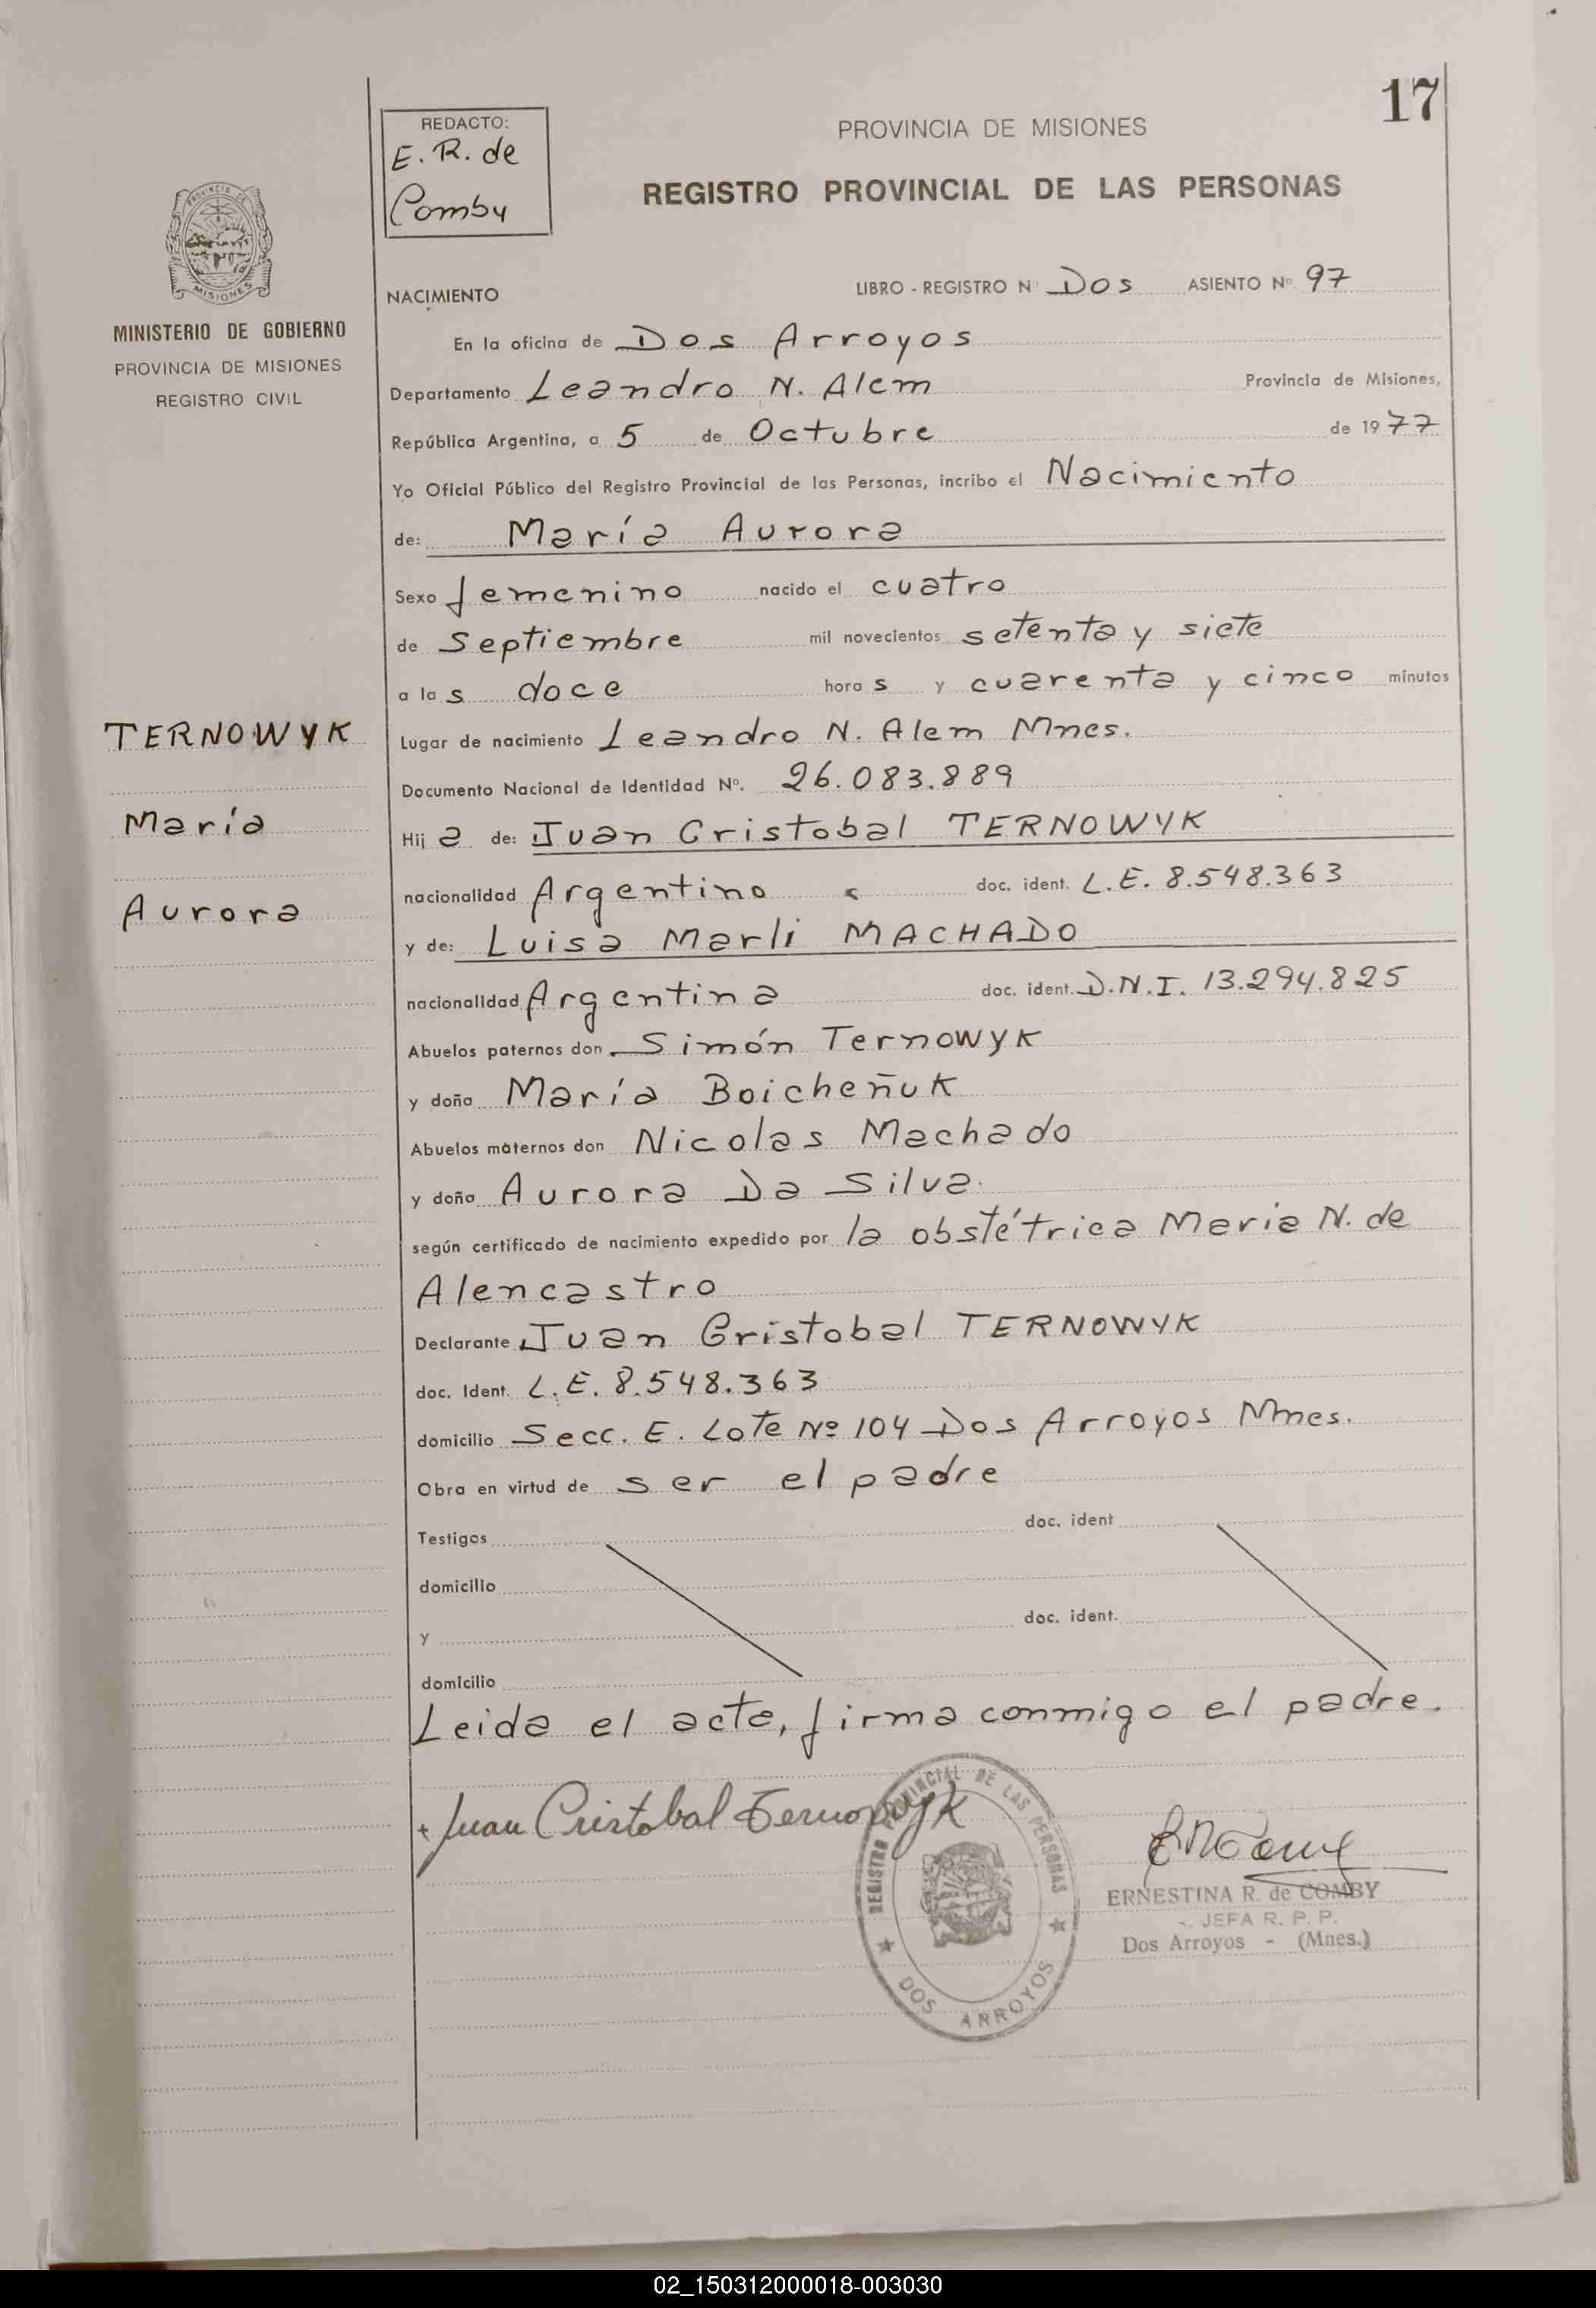 17
REDACTO:
E. R. de
Comby
PROVINCIA DE MISIONES
REGISTRO PROVINCIAL DE LAS PERSONAS
PROVINCIA DE
MISIONES
MINISTERIO DE GOBIERNO
PROVINCIA DE MISIONES
REGISTRO CIVIL
NACIMIENTO
LIBRO - REGISTRO Nº Dos ASIENTO Nº 97
En la oficina de Dos Arroyos
Departamento Leandro N. Alem Provincia de Misiones,
República Argentina, a 5 de Octubre de 1977
Yo Oficial Público del Registro Provincial de las Personas, incribo el Nacimiento
de: María Aurora
Sexo femenino nacido el cuatro
de Septiembre mil novecientos setenta y siete
a las doce horas y cuarenta y cinco minutos
TERNOWYK
María
Aurora
Lugar de nacimiento Leandro N. Alem Mnes.
Documento Nacional de Identidad Nº. 26.083.889
Hija de: Juan Cristobal TERNOWYK
nacionalidad Argentino doc. ident. L.E. 8.548.363
y de: Luisa Marli MACHADO
nacionalidad Argentina doc. ident. D.N.I. 13.294.825
Abuelos paternos don Simón Ternowyk
y doña María Boicheñuk
Abuelos maternos don Nicolas Machado
y doña Aurora Da Silva.
según certificado de nacimiento expedido por la obstétrica Maria N. de
Alencastro
Declarante Juan Cristobal TERNOWYK
doc. Ident. L.E. 8.548.363
domicilio Secc. E. Lote Nº 104 Dos Arroyos Mnes.
Obra en virtud de ser el padre
Testigos doc. ident
domicilio
y doc. ident.
domicilio
Leida el acta, firma conmigo el padre.
+ Juan Cristobal Ternowyk
REGISTRO PROVINCIAL DE LAS PERSONAS
DOS ARROYOS
ERNESTINA R. de COMBY
JEFA R. P. P.
Dos Arroyos - (Mnes.)
02_150312000018-003030